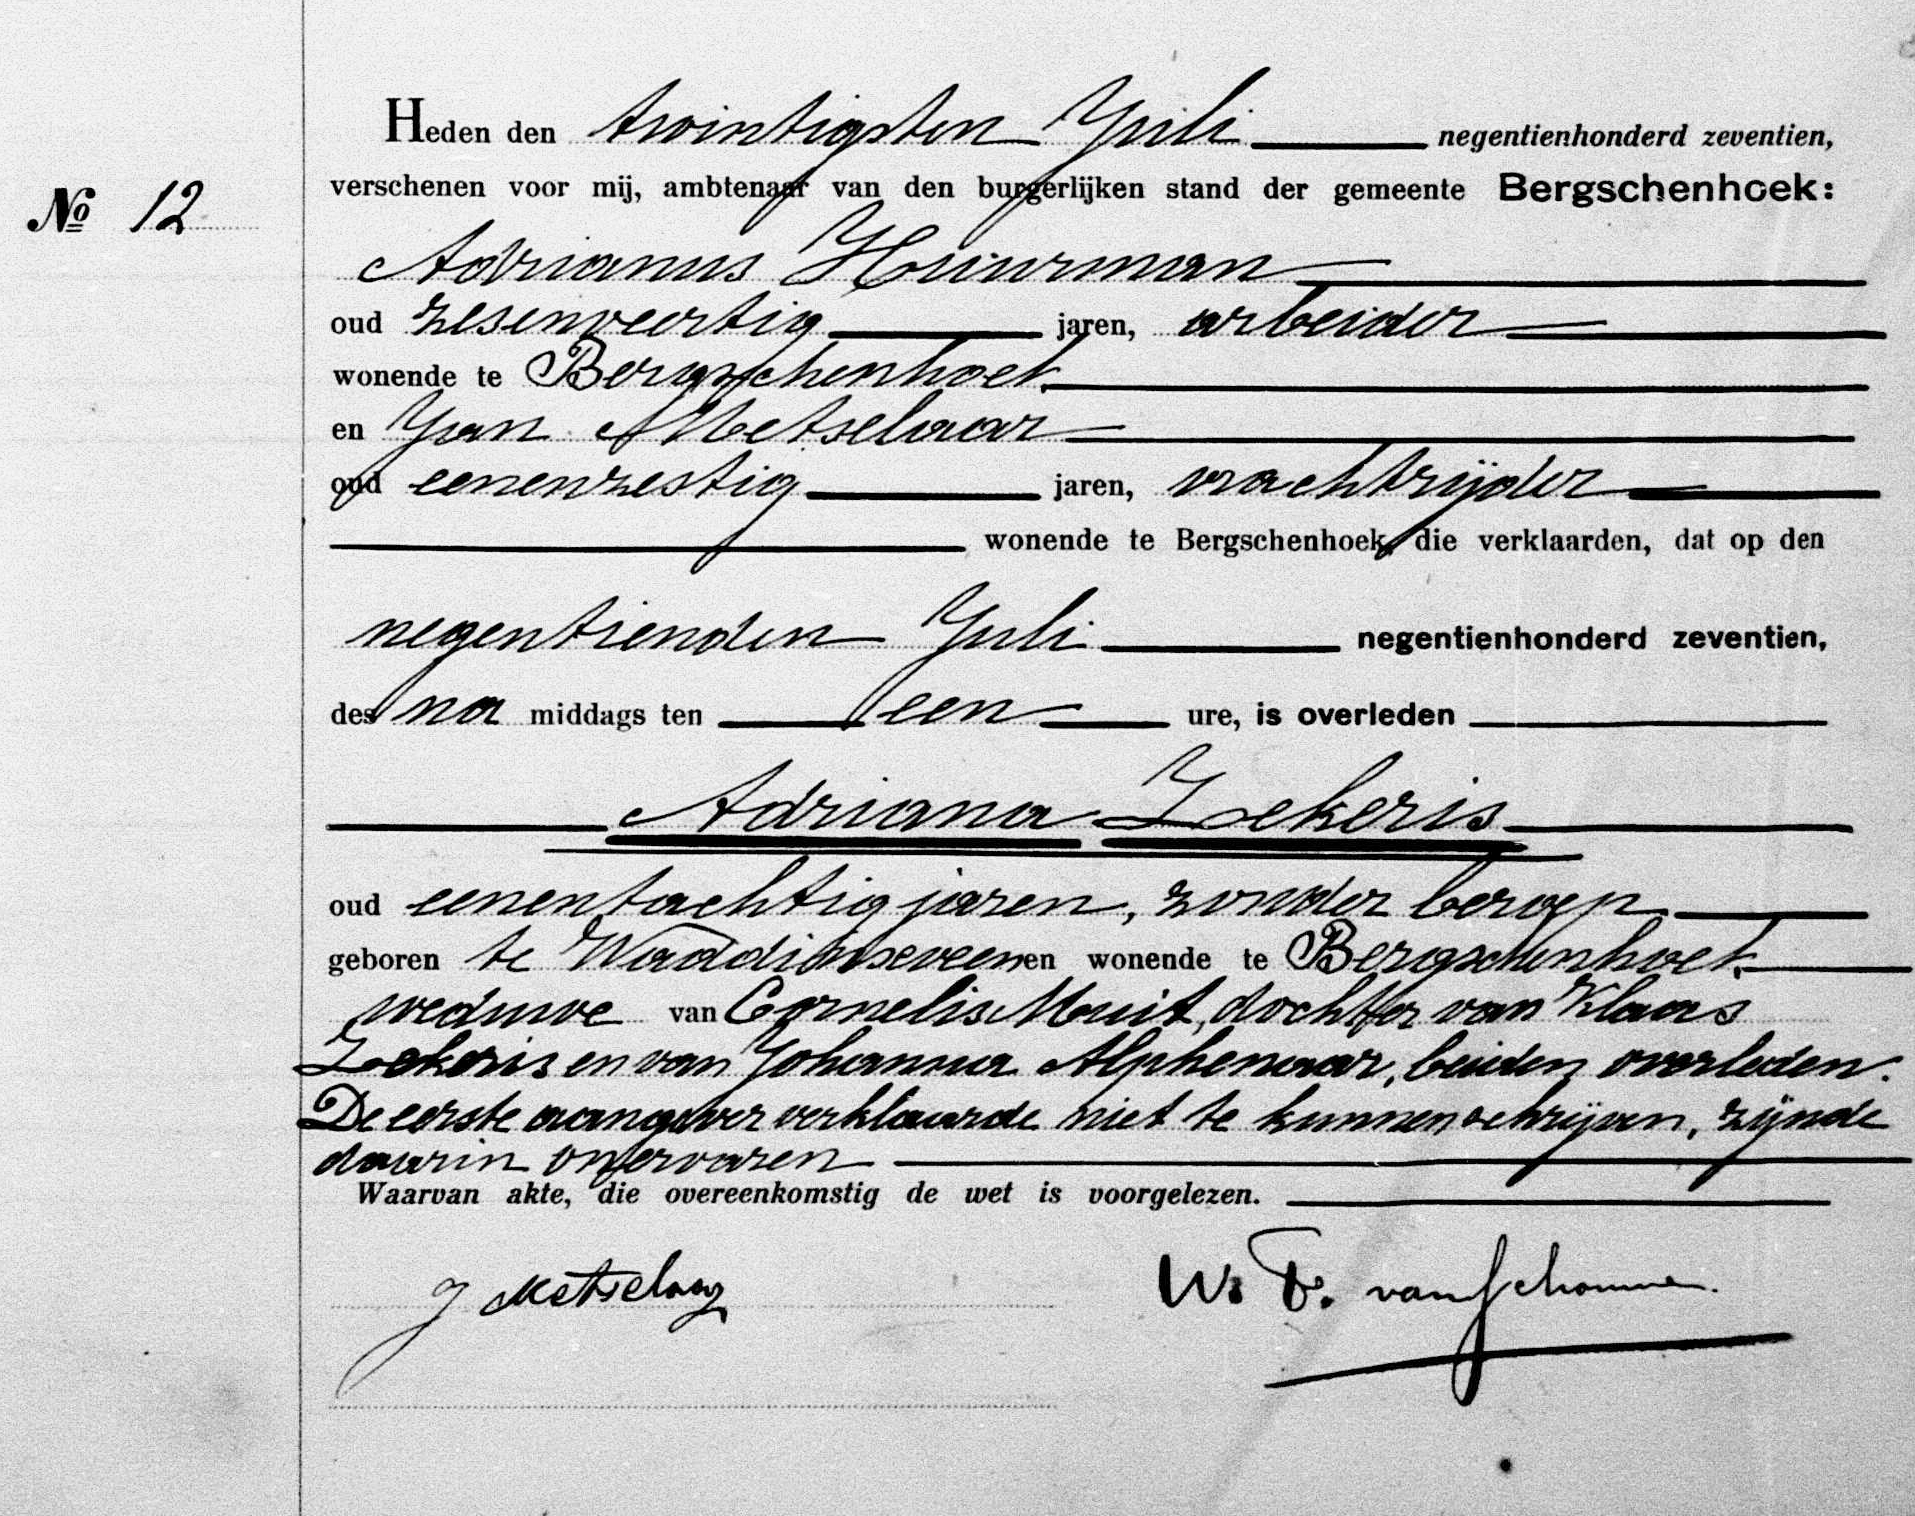 Heden den twintigsten Juli negentienhonderd zeventien,
verschenen voor mij, ambtenaar van den burgerlijken stand der gemeente Bergschenhoek:
No 12
Adrianus Houwman
oud zesenveertig jaren, arbeider
wonende te Bergschenhoek
en Jan Metselaar
oud eenenzestig jaren, vrachtrijder
wonende te Bergschenhoek, die verklaarden, dat op den
negentienden Juli negentienhonderd zeventien,
des na middags ten een ure, is overleden
Adriana Zekeris
oud eenentachtig jaren, zonder beroep
geboren te Waddinxveen en wonende te Bergschenhoek
weduwe van Cornelis Muit, dochter van Klaas
Zekeris en van Johanna Alphenaar, beiden overleden.
De eerste aangever verklaarde niet te kunnen schrijven, zijnde
daarin onervaren
Waarvan akte, die overeenkomstig de wet is voorgelezen.
J Metselaar
W. F. van